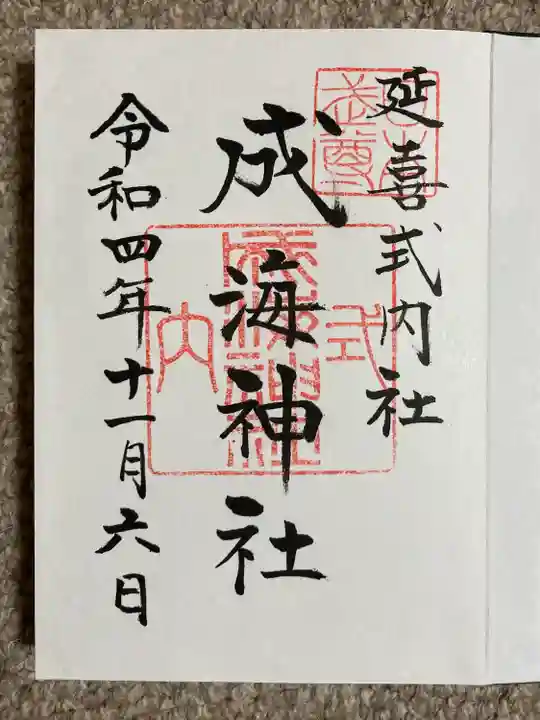 延喜式内社
成海神社
令和四年十一月六日
式内
成海神社